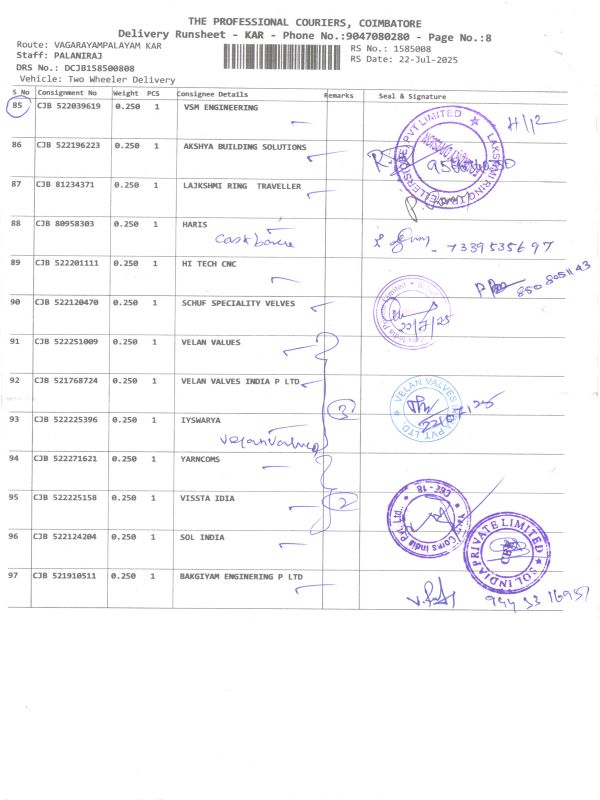 THE PROFESSIONAL COURIERS, COIMBATORE
Delivery Runsheet - KAR - Phone No.:9047080280 - Page No.:8
Route: VAGARAYAMPALAYAM KAR
RS No.: 1585008
Staff: PALANIRAJ
RS Date: 22-Jul-2025
DRS No.: DCJB158500808
Vehicle: Two Wheeler Delivery
S No Consignment No Weight PCS Consignee Details Remarks Seal & Signature
85 CJB 522039619 0.250 1 VSM ENGINEERING
86 CJB 522196223 0.250 1 AKSHYA BUILDING SOLUTIONS
87 CJB 81234371 0.250 1 LAJKSHMI RING TRAVELLER
88 CJB 80958303 0.250 1 HARIS
89 CJB 522201111 0.250 1 HI TECH CNC
850 8051143
90 CJB 522120470 0.250 1 SCHUF SPECIALITY VELVES
22/7/25
91 CJB 522251009 0.250 1 VELAN VALUES
92 CJB 521768724 0.250 1 VELAN VALVES INDIA P LTD
3
VELAN VALVES PVT LTD.
22/07/25
93 CJB 522225396 0.250 1 IYSWARYA
velanvalues
94 CJB 522271621 0.250 1 YARNCOMS
95 CJB 522225158 0.250 1 VISSTA IDIA
2
CBE - 18
Coms India Pvt Ltd.
96 CJB 522124204 0.250 1 SOL INDIA
SOL INDIA PRIVATE LIMITED
CBE
97 CJB 521910511 0.250 1 BAKGIYAM ENGINERING P LTD
944 33 16957